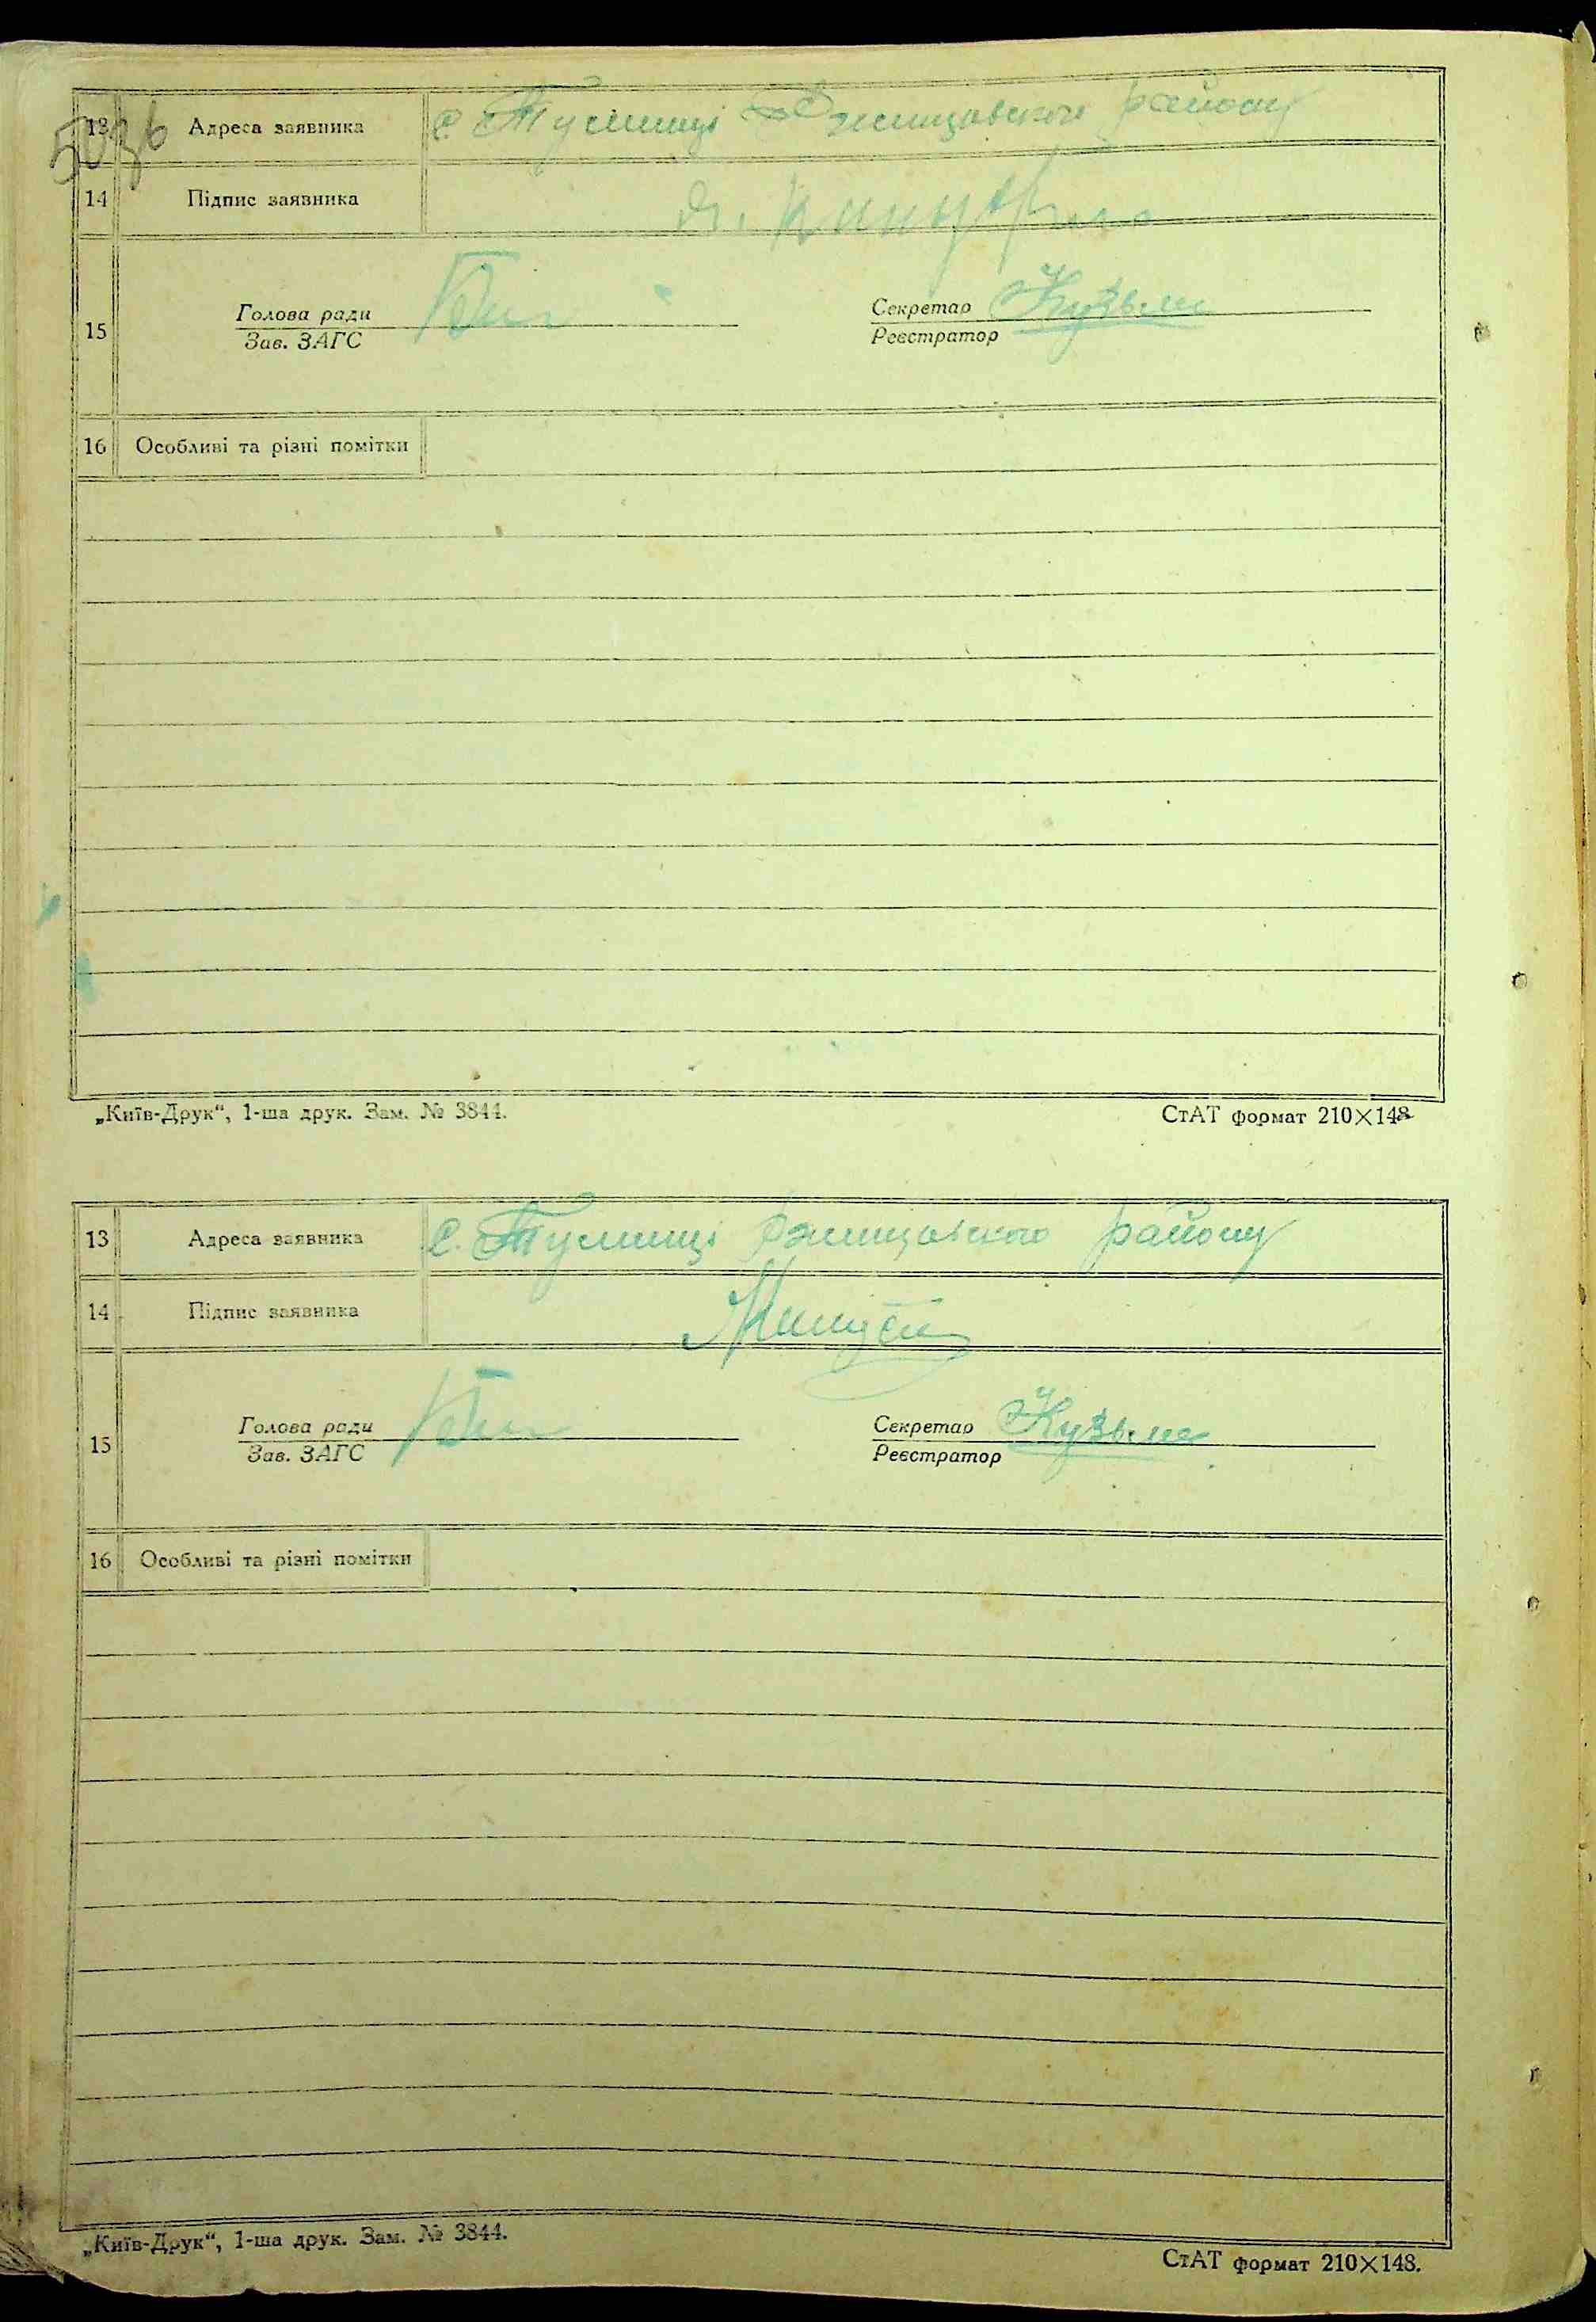 503б
13 Адреса заявника с. Тулинці Ржищівського району
14 Підпис заявника
15 Голова ради Секретар Кузьм
Зав. ЗАГС Реєстратор
16 Особливі та різні помітки
„Київ-Друк“, 1-ша друк. Зам. № 3844. СтАТ формат 210×148
13 Адреса заявника с. Тулинці Ржищівського району
14 Підпис заявника
15 Голова ради Секретар Кузьм
Зав. ЗАГС Реєстратор
16 Особливі та різні помітки
„Київ-Друк“, 1-ша друк. Зам. № 3844. СтАТ формат 210×148.